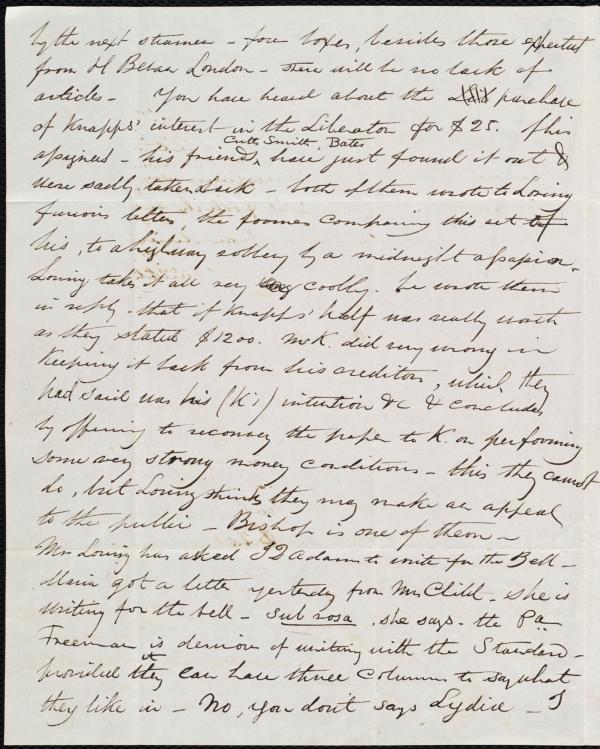 by the next steamer - four boxes, besides those expected
from H Bevan London - there will be no lack of
articles - You have heard about the purchase
of Knapps' interest in the Liberator for $25. of his
assignees - his friends, Cutts Smith, Bates have just found it out &
were sadly taken aback - both of them wrote to Loring
furious letters, the former comparing this act of
his, to a highway robbery by a midnight assassin.
Loring takes it all very coolly. he wrote them
in reply - that if Knapps' half was really worth
as they stated $1200. Mr K. did very wrong in
keeping it back from his creditors, which they
had said was his (K's) intention &c & concludes
by offering to reconvey the paper to K. on performing
some very strong money conditions - this they cannot
do, but Loring thinks they may make an appeal
to the public - Bishop is one of them -
Mrs Loring has asked J Q Adams to write for the Bell -
Maria got a letter yesterday from Mrs Child - she is
writing for the bell - sub rosa, she says - the Pa
Freeman is desirous of uniting with the Standard -
provided it they can have three columns to say what
they like in - No, you don't says Lydia - I